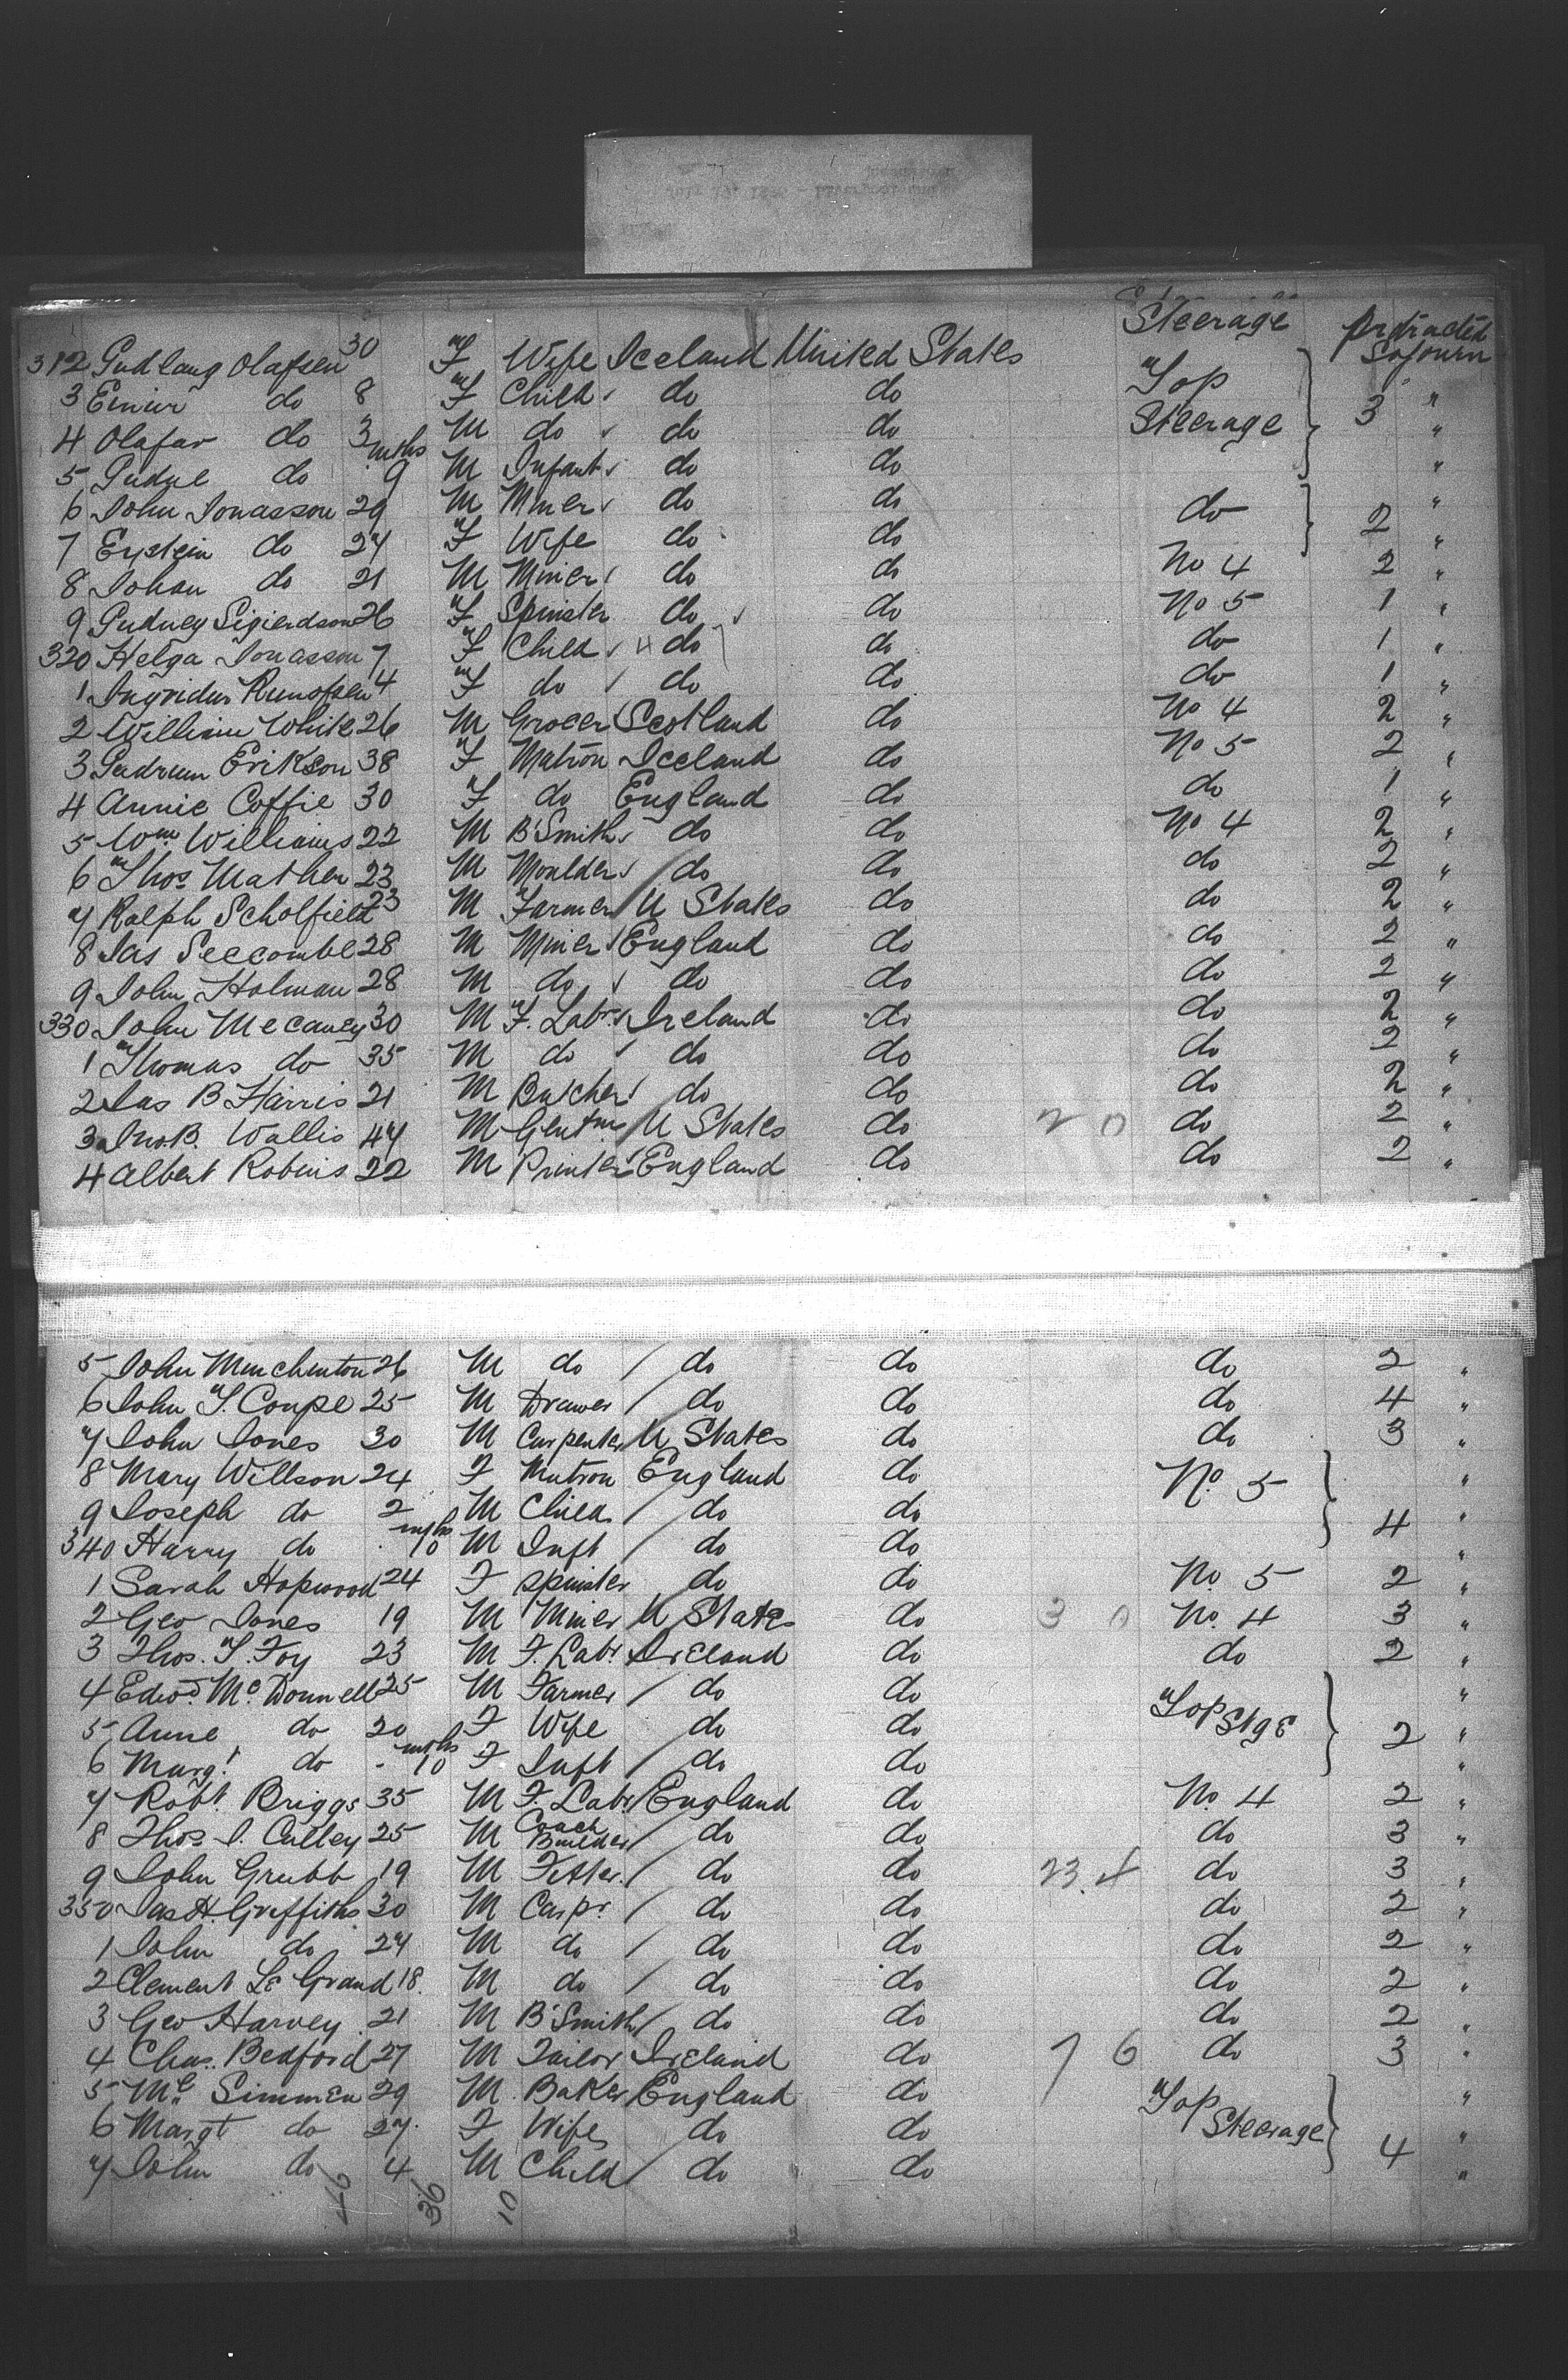 Steerage Protracted Sojourn
312 Gudlaug Olafsen 30 F Wife Iceland United States Top Steerage 3 "
3 Einur do 8 F Child do do "
4 Olafar do 3 M do do do "
5 do mths 9 M Infant do do "
6 John Jonasson 29 M Miner do do do 2 "
7 Eystein do 27 F Wife do do "
8 Johan do 21 M Miner do do No 4 2 "
9 Gudney Sigierdson 26 F Spinster do do No 5 1 "
320 Helga Jonasson 7 F Child " do do do 1 "
1 Ingridur 4 F do do do do 1 "
2 William White 26 M Grocer Scotland do No 4 2 "
3 Gudrum Erikson 38 F Matron Iceland do No 5 2 "
4 Annie Coffie 30 F do England do do 1 "
5 Wm Williams 22 M B'Smith do do No 4 2 "
6 Thos Mather 23 M Moulder do do do 2 "
7 Ralph Scholfield 23 M Farmer U States do do 2 "
8 Jas Seccombe 28 M Miner England do do 2 "
9 John Holman 28 M do do do do 2 "
330 John Mecaney 30 M F. Labr Ireland do do 2 "
1 Thomas do 35 M do do do do 2 "
2 Jas B Harris 21 M Butcher do do do 2 "
3 Jno. B. Wallis 47 M Gentmn U States do 20 do 2 "
4 Albert Robins 22 M Printer England do do 2 "
5 John Munchinton 26 M do do do do 2 "
6 John T. Coupe 25 M Drawer do do do 4 "
7 John Jones 30 M Carpenter U States do do 3 "
8 Mary Willson 24 F Matron England do No. 5 "
9 Joseph do 2 M Child do do 4 "
340 Harry do mths 10 M Inft do do "
1 Sarah Hopwood 24 F Spinster do do No. 5 2 "
2 Geo Jones 19 M Miner U States do 3 0 No. 4 3 "
3 Thos. T. Foy 23 M F. Labr Ireland do do 2 "
4 Edwd. Mc Donnell 25 M Farmer do do Top Stge "
5 Anne do 20 F Wife do do 2 "
6 Margt do mths 10 F Inft do do "
7 Robt. Briggs 35 M F. Labr England do No. 4 2 "
8 Thos. J. Culley 25 M Coach Builder do do do 3 "
9 John Grubb 19 M Fitter do do 23.4 do 3 "
350 Jas H. Griffiths 30 M Carpr. do do do 2 "
1 John do 27 M do do do do 2 "
2 Clement Le Grand 18 M do do do do 2 "
3 Geo Harvey 21 M B'Smith do do do 2 "
4 Chas. Bedford 27 M Tailor Ireland do 7 6 do 3 "
5 Simmen 29 M Baker England do Top Steerage "
6 Margt do 27 F Wife do do "
7 John do 4 M Child do do 4 "
46 36 10